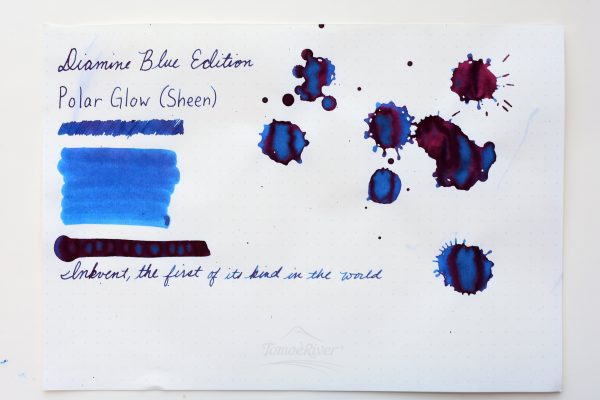 Diamine Blue Edition
Polar Glow (Sheen)
Inkvent, the first of its kind in the world
TomoeRiver